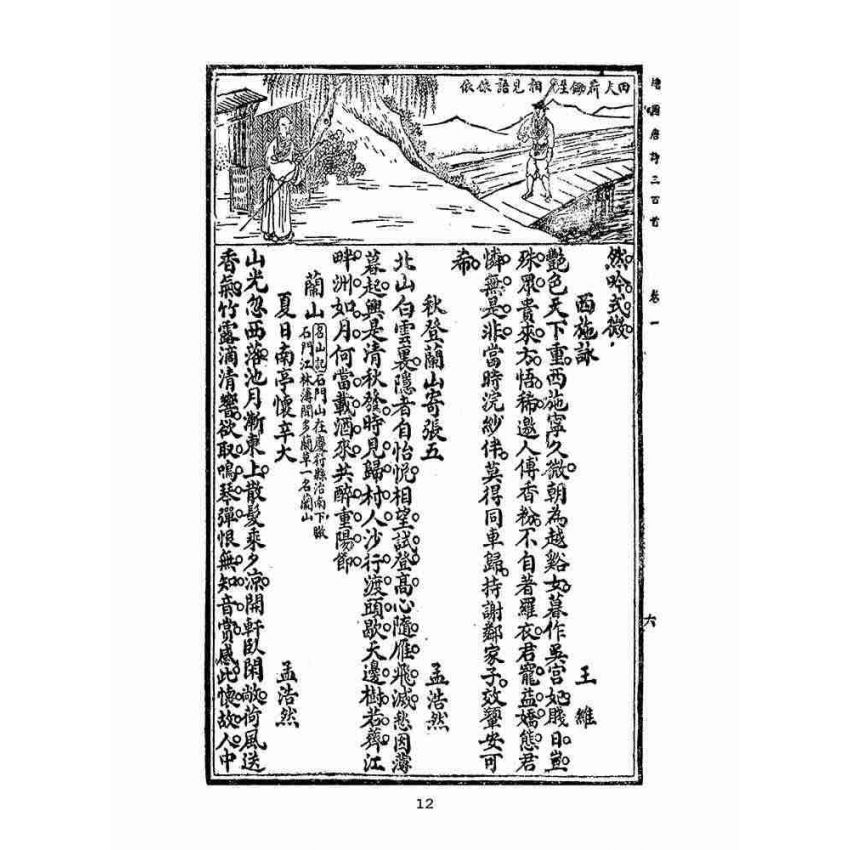 繪圖唐詩三百首 卷一 六
田夫荷鋤至相見語依依
然吟式微
西施詠 王維
艷色天下重西施寧久微朝為越谿女暮作吳宮妃賤日豈
殊眾貴來方悟稀邀人傅香粉不自著羅衣君寵益嬌態君
憐無是非當時浣紗伴莫得同車歸持謝鄰家子效顰安可
希
秋登蘭山寄張五 孟浩然
北山白雲裏隱者自怡悅相望試登高心隨雁飛滅愁因薄
暮起興是清秋發時見歸村人沙行渡頭歇天邊樹若薺江
畔洲如月何當載酒來共醉重陽節
蘭山 名山記石門山在慶符縣治南下瞰
石門江林薄間多蘭草一名蘭山
夏日南亭懷辛大 孟浩然
山光忽西落池月漸東上散髮乘夕涼開軒臥閑敞荷風送
香氣竹露滴清響欲取鳴琴彈恨無知音賞感此懷故人中
12